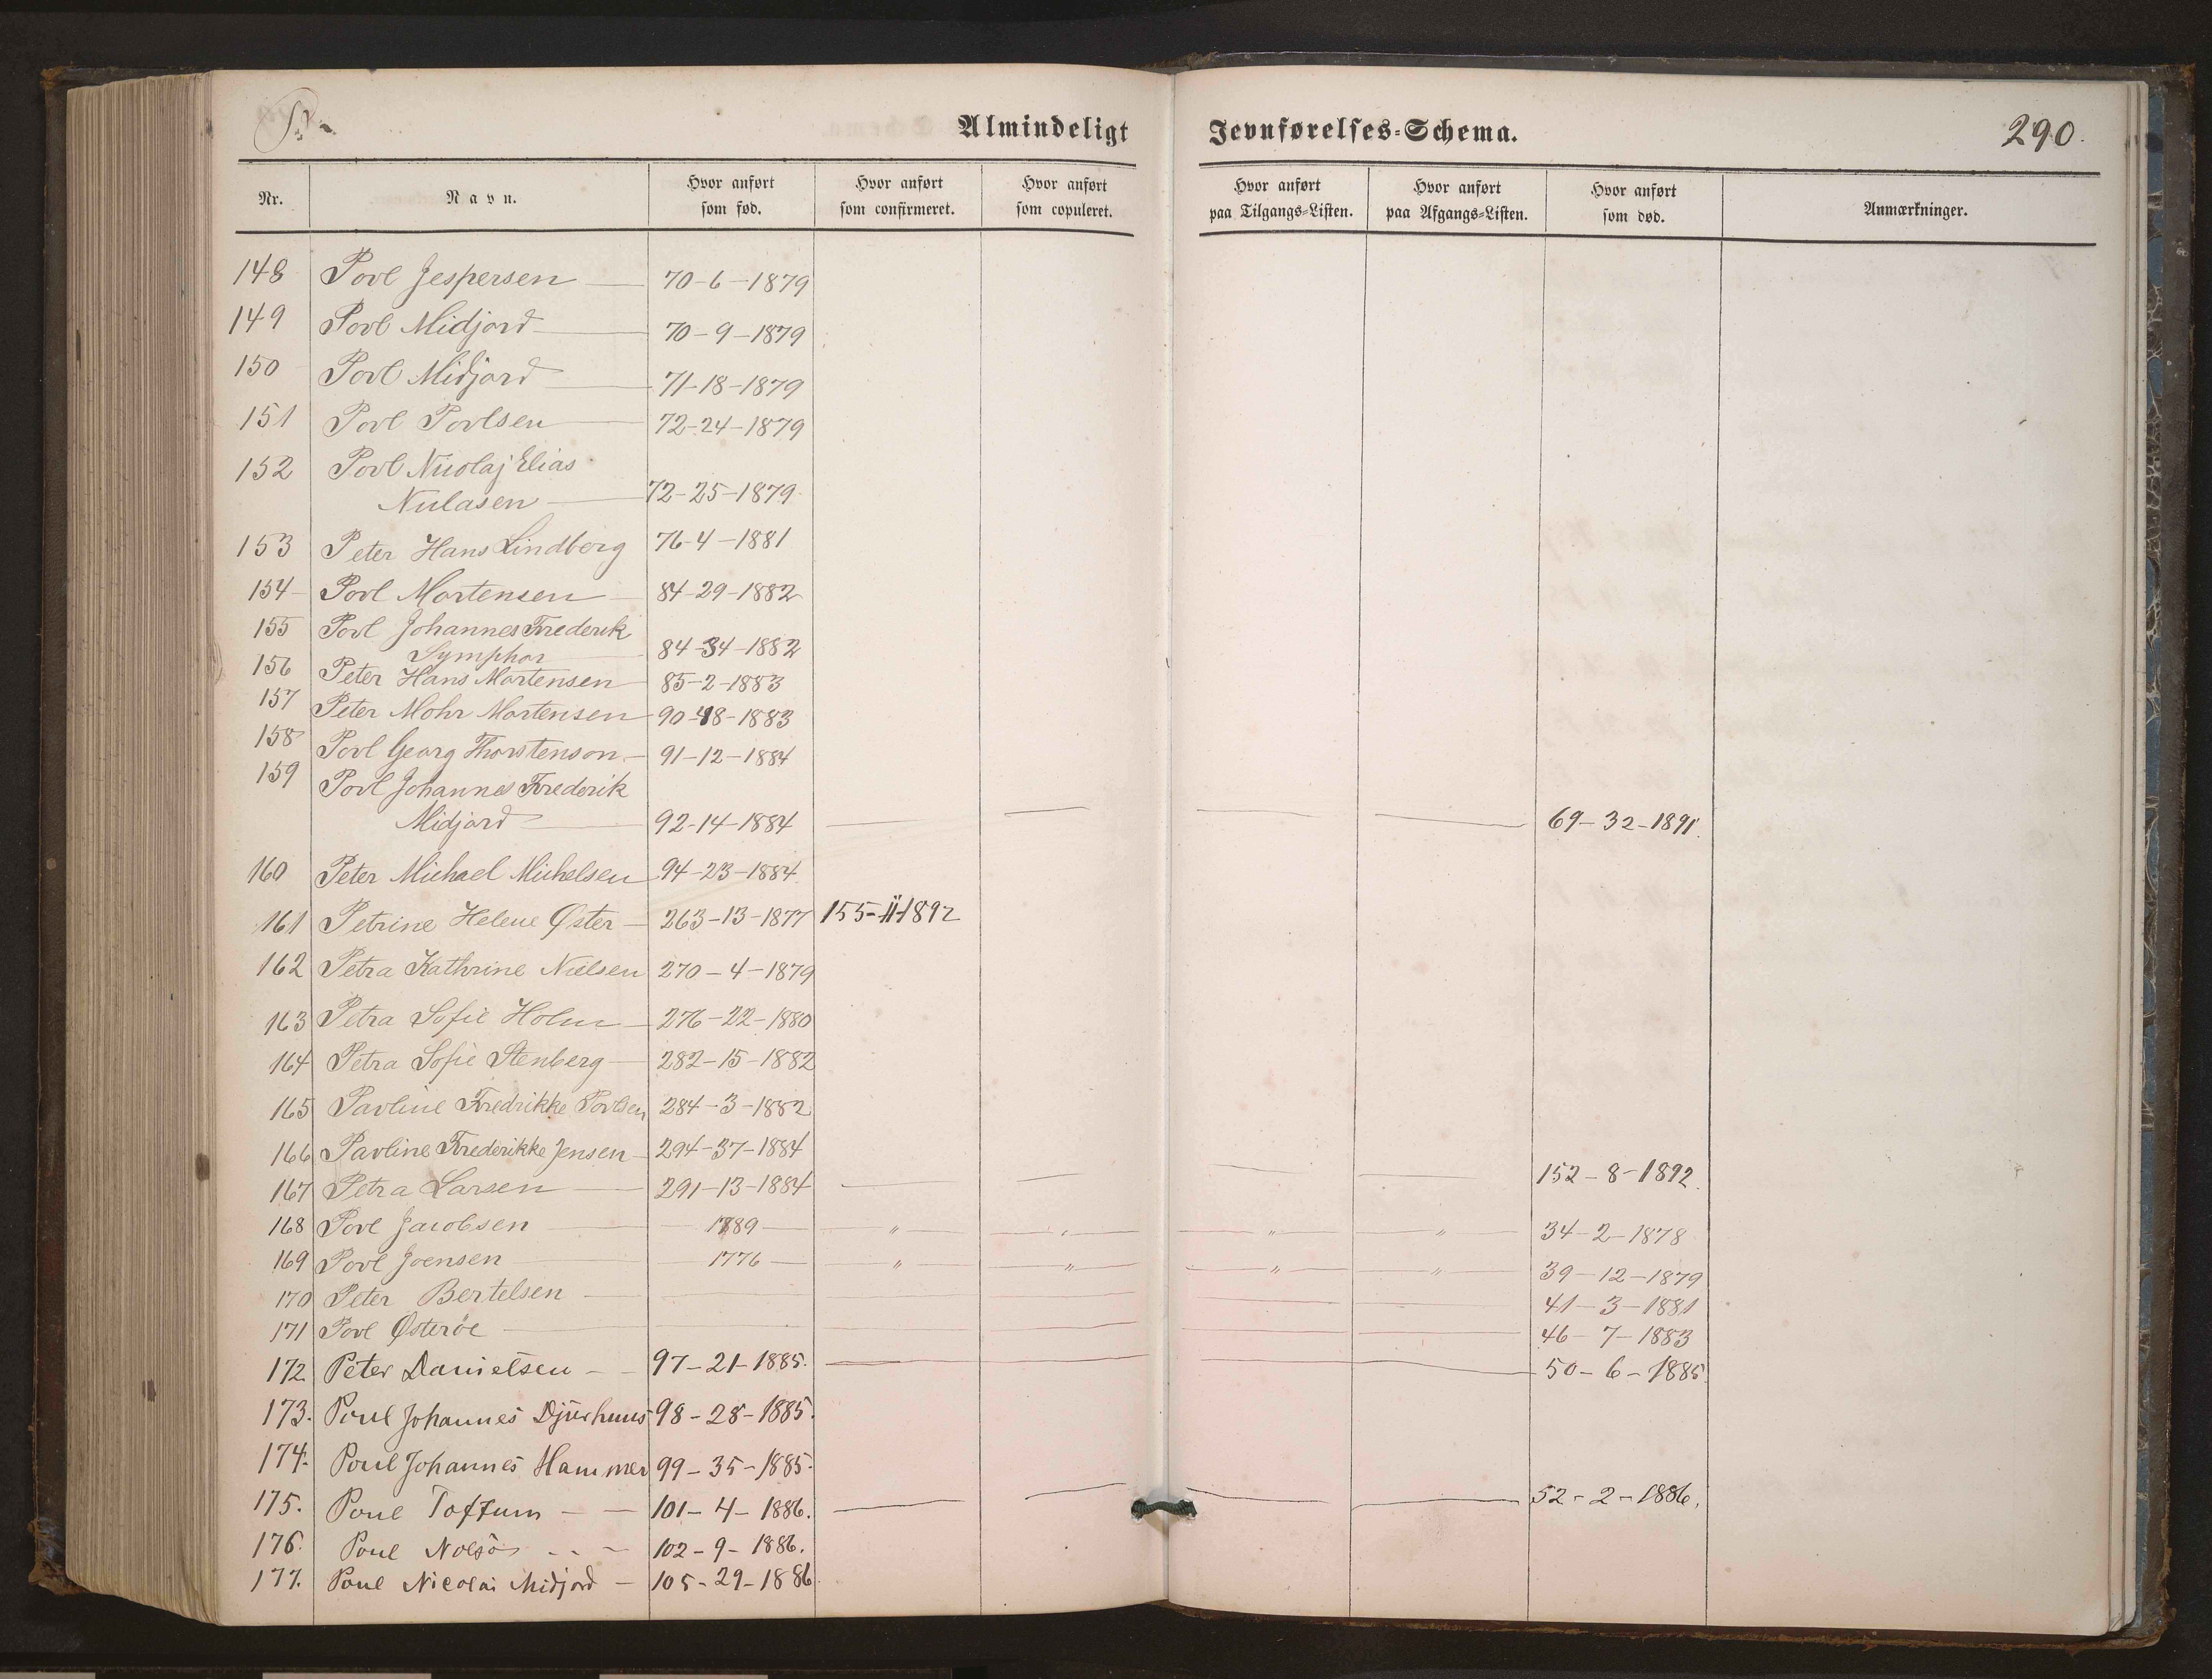 P.
Almindeligt Jevnførelses-Schema.
290.
Nr. Navn. Hvor anført som fød. Hvor anført som confirmeret. Hvor anført som copuleret. Hvor anført paa Tilgangs-Listen. Hvor anført paa Afgangs-Listen. Hvor anført som død. Anmærkninger.
148 Povl Jespersen 70-6-1879
149 Povl Midjord 70-9-1879
150 Povl Midjord 71-18-1879
151 Povl Povlsen 72-24-1879
152 Povl Nicolaj Elias
Niclasen 72-25-1879
153 Peter Hans Lindberg 76-4-1881
154 Povl Mortensen 84-29-1882
155 Povl Johannes Frederik
Symphor 84-34-1882
156 Peter Hans Mortensen 85-2-1883
157 Peter Mohr Mortensen 90-48-1883
158 Povl Georg Thorstenson 91-12-1884
159 Povl Johannes Frederik
Midjord 92-14-1884 — — — — 69-32-1891.
160 Peter Michael Michelsen 94-23-1884
161 Petrine Helene Øster 263-13-1877 155-11-1892
162 Petra Kathrine Nielsen 270-4-1879
163 Petra Sofie Holm 276-22-1880
164 Petra Sofie Stenberg 282-15-1882
165 Pavline Fredrikke Povlsen 284-3-1882
166 Pavline Frederikke Jensen 294-37-1884
167 Petra Larsen 291-13-1884 — — — — 152-8-1892.
168 Povl Jacobsen 1789 " " " " 34-2-1878
169 Povl Joensen 1776 " " " " 39-12-1879
170 Peter Bertelsen — — — — — 41-3-1881
171 Povl Østerøe — — — — — 46-7-1883
172. Peter Danielsen 97-21-1885. — — — — 50-6-1885.
173. Poul Johannes Djurhuus 98-28-1885.
174. Poul Johannes Hammer 99-35-1885.
175. Poul Toftum 101-4-1886. — — — — 52-2-1886.
176. Poul Nolsö 102-9-1886.
177. Poul Nicolai Midjord 105-29-1886.